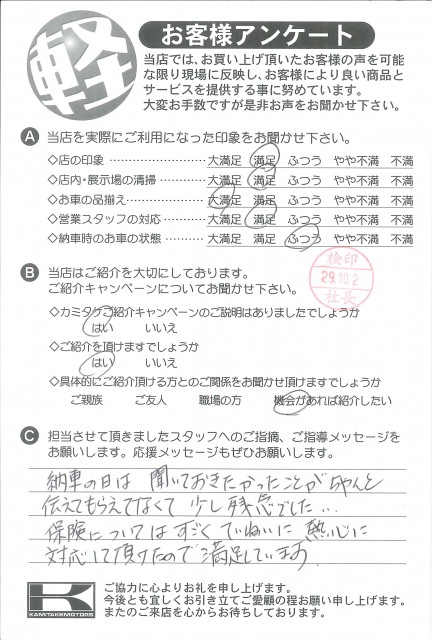 軽
お客様アンケート
当店では、お買い上げ頂いたお客様の声を可能
な限り現場に反映し、お客様により良い商品と
サービスを提供する事に努めています。
大変お手数ですが是非お声をお聞かせ下さい。
A 当店を実際にご利用になった印象をお聞かせ下さい。
◇店の印象 ………………… 大満足 満足 ふつう やや不満 不満
◇店内・展示場の清掃 ………… 大満足 満足 ふつう やや不満 不満
◇お車の品揃え ……………… 大満足 満足 ふつう やや不満 不満
◇営業スタッフの対応 ………… 大満足 満足 ふつう やや不満 不満
◇納車時のお車の状態 ……… 大満足 満足 ふつう やや不満 不満
検印
29.10.2
社長
B 当店はご紹介を大切にしております。
ご紹介キャンペーンについてお聞かせ下さい。
◇カミタケご紹介キャンペーンのご説明はありましたでしょうか
はい いいえ
◇ご紹介を頂けますでしょうか
はい いいえ
◇具体的にご紹介頂ける方とのご関係をお聞かせ頂けますでしょうか
ご親族 ご友人 職場の方 機会があれば紹介したい
C 担当させて頂きましたスタッフへのご指摘、ご指導メッセージを
お願いします。応援メッセージもぜひお願いします。
納車の日は 聞いておきたかったことがちゃんと
伝えてもらえてなくて 少し残念でした…
保険についてはすごくていねいに 熱心に
対応して頂けたので満足しています。
K
KAMITAKEMOTORS
ご協力に心よりお礼を申し上げます。
今後とも宜しくお引き立てご愛顧の程お願い申し上げます。
またのご来店を心からお待ちしております。